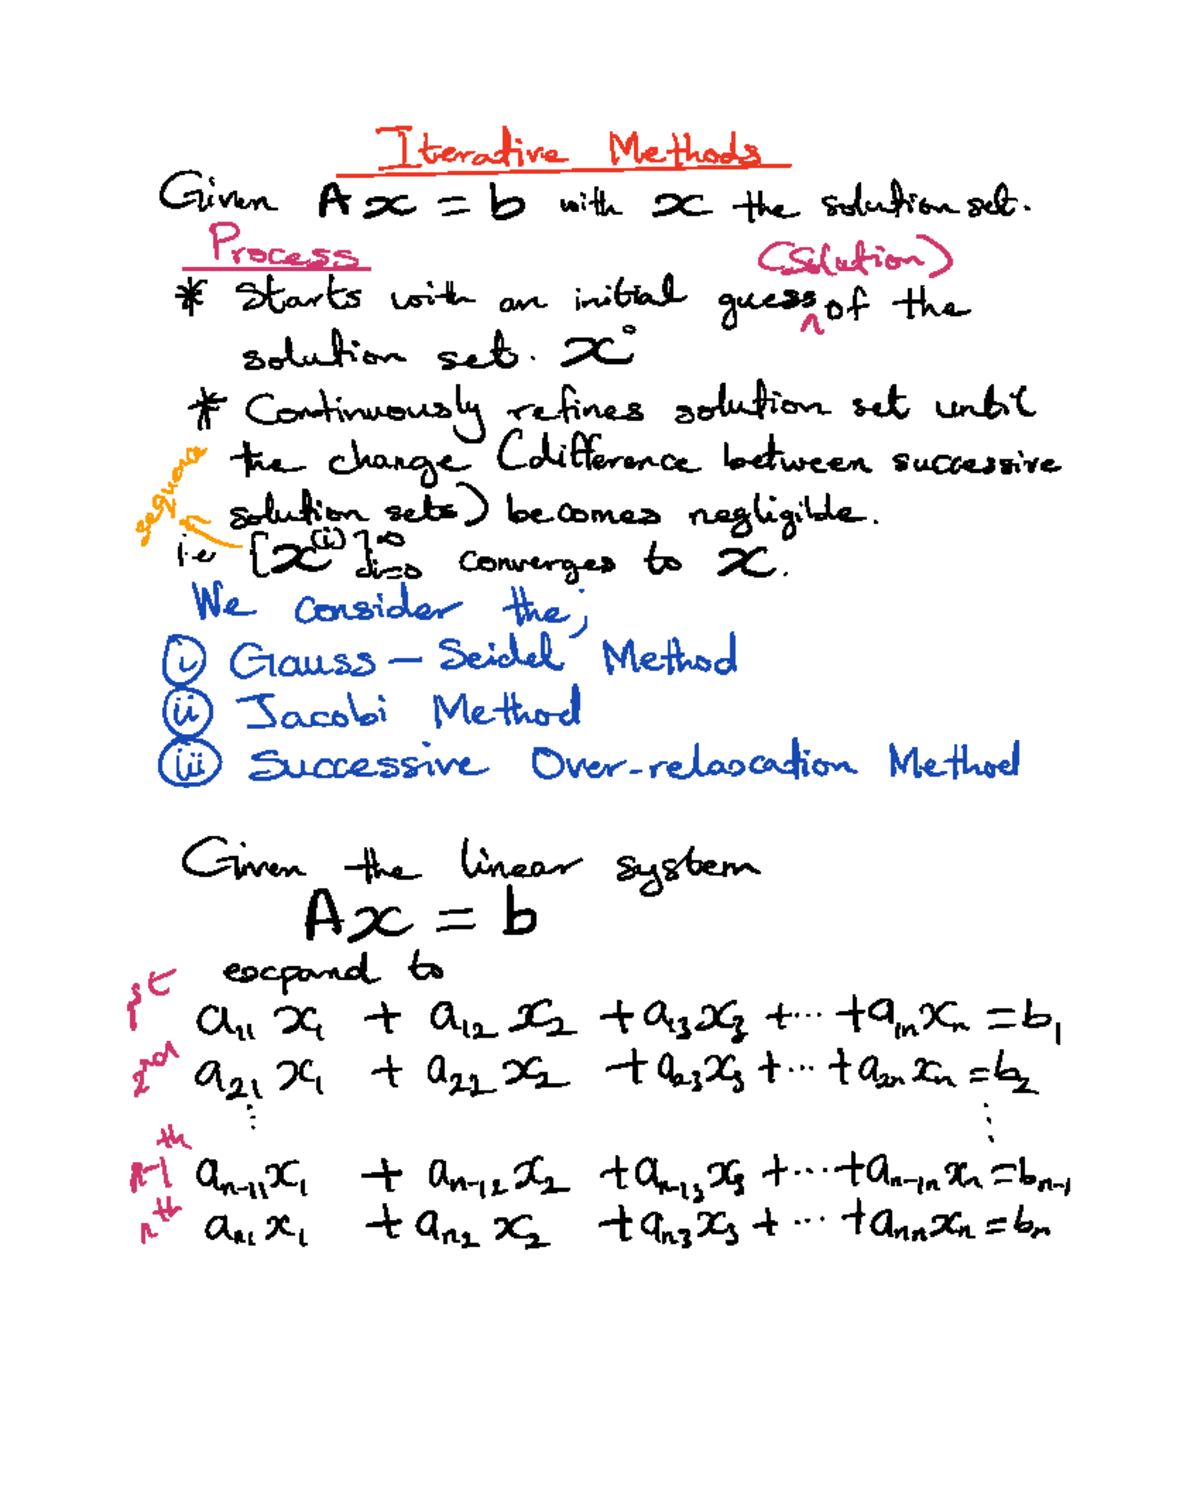 Iterative Methods
Given Ax = b with x the solution set.
Process
(Solution)
* Starts with an initial guess ^ of the
solution set. x°
* Continuously refines solution set until
the change (difference between successive
solution sets) becomes negligible.
sequence
i.e {x^(i)}_{i=0}^∞ converges to x.
We consider the;
(i) Gauss-Seidel Method
(ii) Jacobi Method
(iii) Successive Over-relaxation Method
Given the linear system
Ax = b
expand to
1st a₁₁x₁ + a₁₂x₂ + a₁₃x₃ + ... + a₁ₙxₙ = b₁
2nd a₂₁x₁ + a₂₂x₂ + a₂₃x₃ + ... + a₂ₙxₙ = b₂
⋮ ⋮
n-1th aₙ₋₁₁x₁ + aₙ₋₁₂x₂ + aₙ₋₁₃x₃ + ... + aₙ₋₁ₙxₙ = bₙ₋₁
nth aₙ₁x₁ + aₙ₂x₂ + aₙ₃x₃ + ... + aₙₙxₙ = bₙ